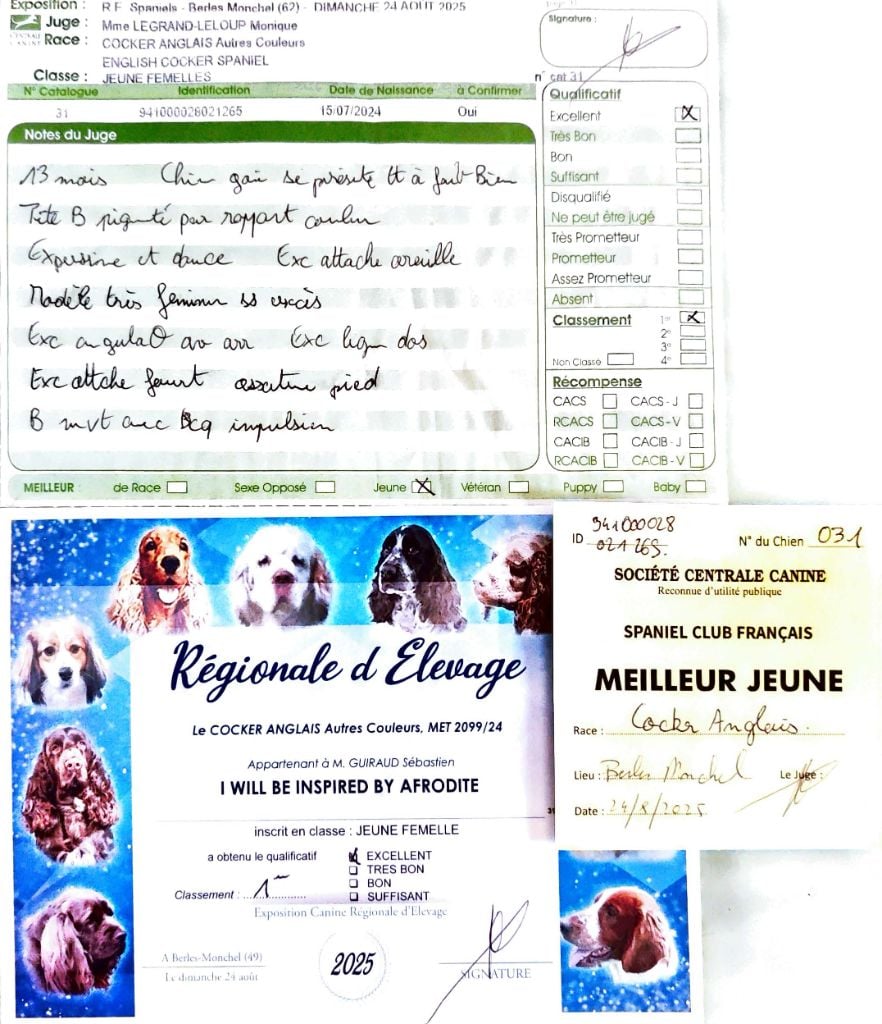 Exposition : R.E. Spaniels - Berles Monchel (62) - DIMANCHE 24 AOUT 2025
Juge : Mme LEGRAND-LELOUP Monique
Race : COCKER ANGLAIS Autres Couleurs
ENGLISH COCKER SPANIEL
Classe : JEUNE FEMELLES
Signature :
n° cat 31
N° Catalogue Identification Date de Naissance à Confirmer
31 941000028021265 15/07/2024 Oui
Notes du Juge
13 mois Chien gai se présente tt à fait Bien
Tête B pigmté par rapport couleur
Expressive et douce Exc attache oreille
Modèle très féminin ss excès
Exc angulaO av arr Exc ligne dos
Exc attche fouet ossature pied
B mvt avec Bcq impulsion
Qualificatif
Excellent X
Très Bon
Bon
Suffisant
Disqualifié
Ne peut être jugé
Très Prometteur
Prometteur
Assez Prometteur
Absent
Classement 1er X
2e
3e
Non Classé 4e
Récompense
CACS CACS - J
RCACS CACS - V
CACIB CACIB - J
RCACIB CACIB - V
MEILLEUR : de Race Sexe Opposé Jeune X Vétéran Puppy Baby
Régionale d Elevage
Le COCKER ANGLAIS Autres Couleurs, MET 2099/24
Appartenant à M. GUIRAUD Sébastien
I WILL BE INSPIRED BY AFRODITE
inscrit en classe : JEUNE FEMELLE
a obtenu le qualificatif
EXCELLENT
TRES BON
BON
SUFFISANT
Classement : 1
Exposition Canine Régionale d'Elevage
A Berles-Monchel (49)
Le dimanche 24 août
2025
SIGNATURE
ID 941000028
021265
N° du Chien 031
SOCIÉTÉ CENTRALE CANINE
Reconnue d'utilité publique
SPANIEL CLUB FRANÇAIS
MEILLEUR JEUNE
Race : Cocker Anglais
Lieu : Berles Monchel Le Juge :
Date : 24/8/2025